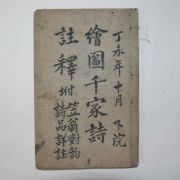 丁未年十月下浣
繪圖千家詩
註釋附
笠翁對韵
詩品詳註